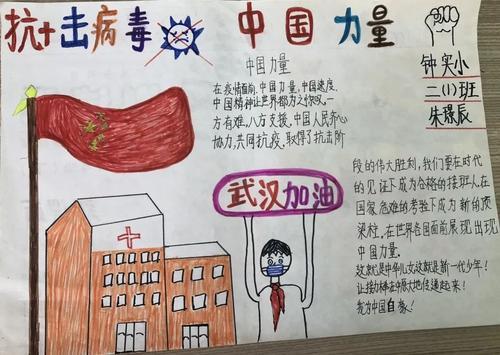 抗击病毒 中国力量
钟实小
二(1)班
朱璟辰
中国力量
在疫情面前,中国力量,中国速度、
中国精神让世界都为之惊叹,一
方有难,八方支援,中国人民齐心
协力,共同抗疫,取得了抗击阶
段的伟大胜利,我们要在时代
的见证下成为合格的接班人在
国家危难的考验下成为新的顶
梁柱,在世界各国面前展现出现
中国力量.
这就是中华儿女这就是新一代少年!
让接力棒在中原大地传递起来!
我为中国自豪!
武汉加油